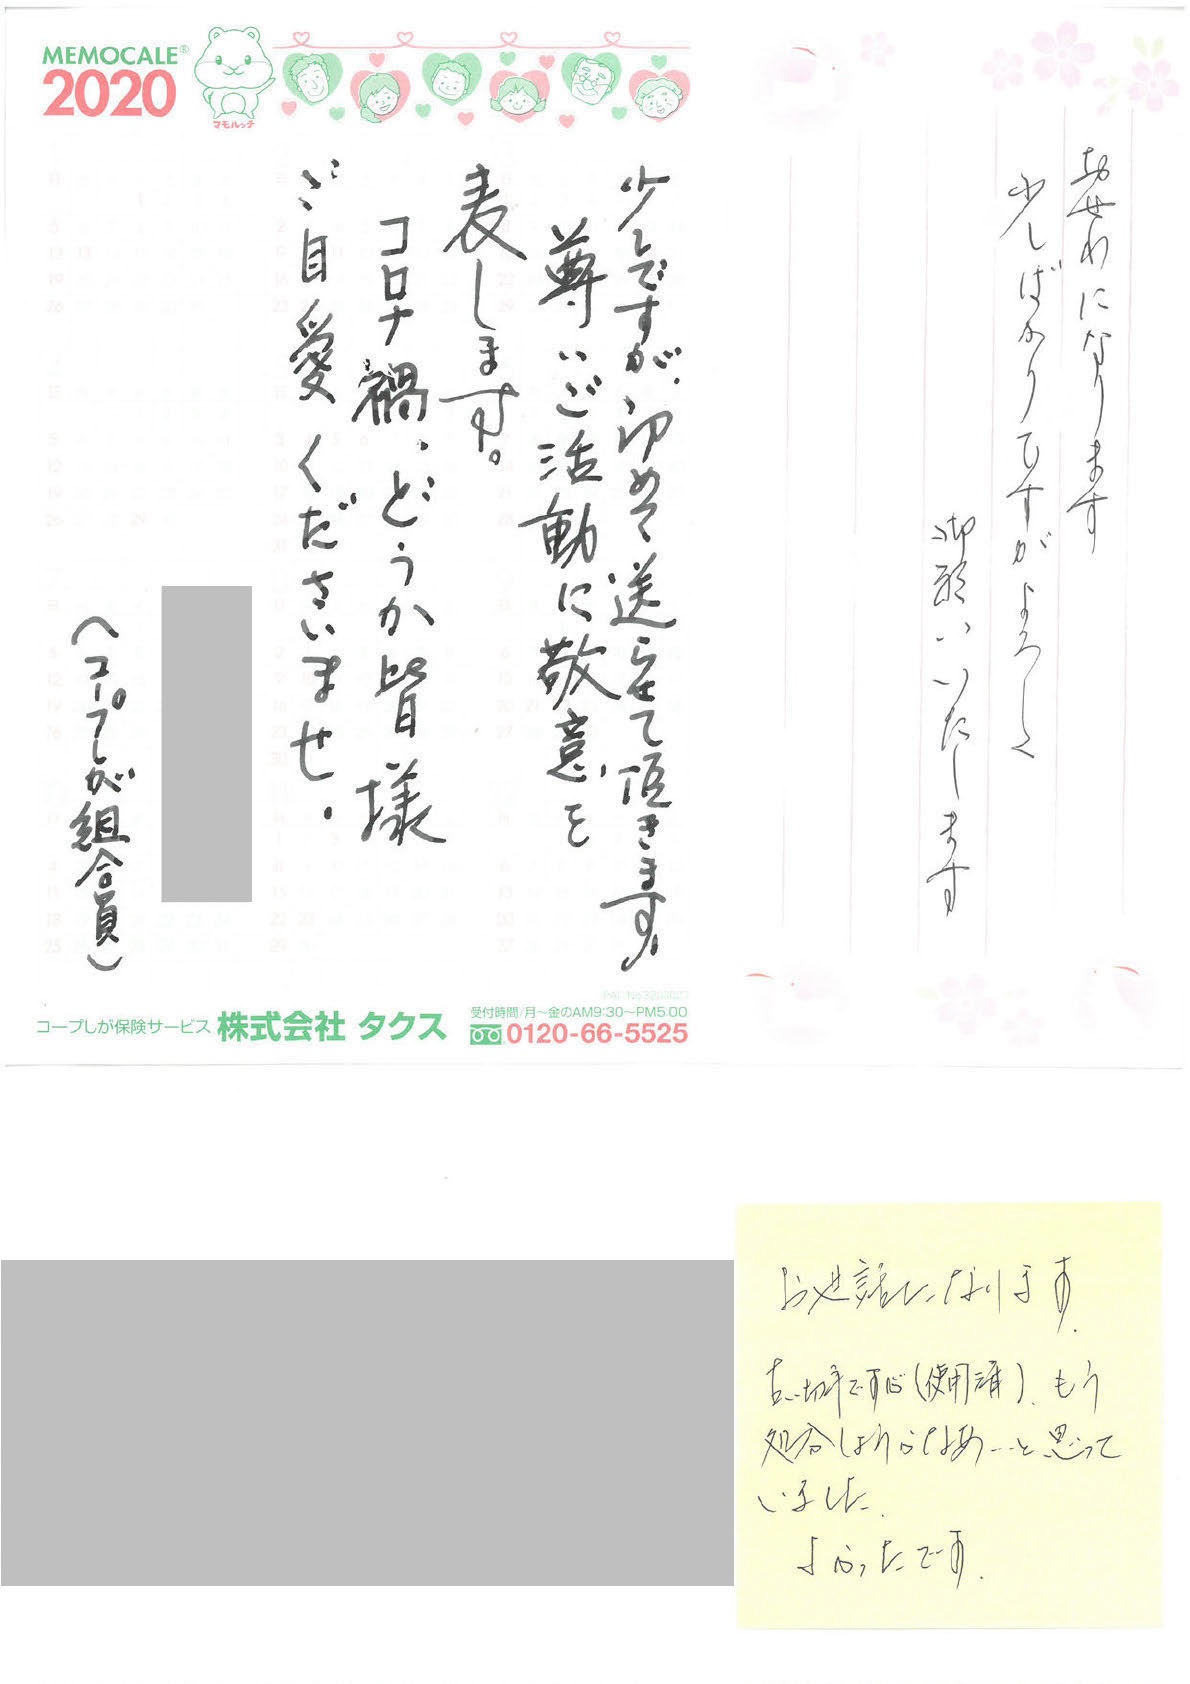 MEMOCALE®
2020
マモルッチ
少しですが、初めて送らせて頂きます。
尊いご活動に敬意を
表します。
コロナ禍、どうか皆様
ご自愛くださいませ。
(コープしが組合員)
コープしが保険サービス 株式会社 タクス
受付時間/月〜金のAM9:30〜PM5:00
0120-66-5525
お世話になります
少しばかりですがよろしく
御願いいたします
お世話になります.
古い切手ですが(使用済).もう
処分しようかなあ…と思って
いました.
よかったです.